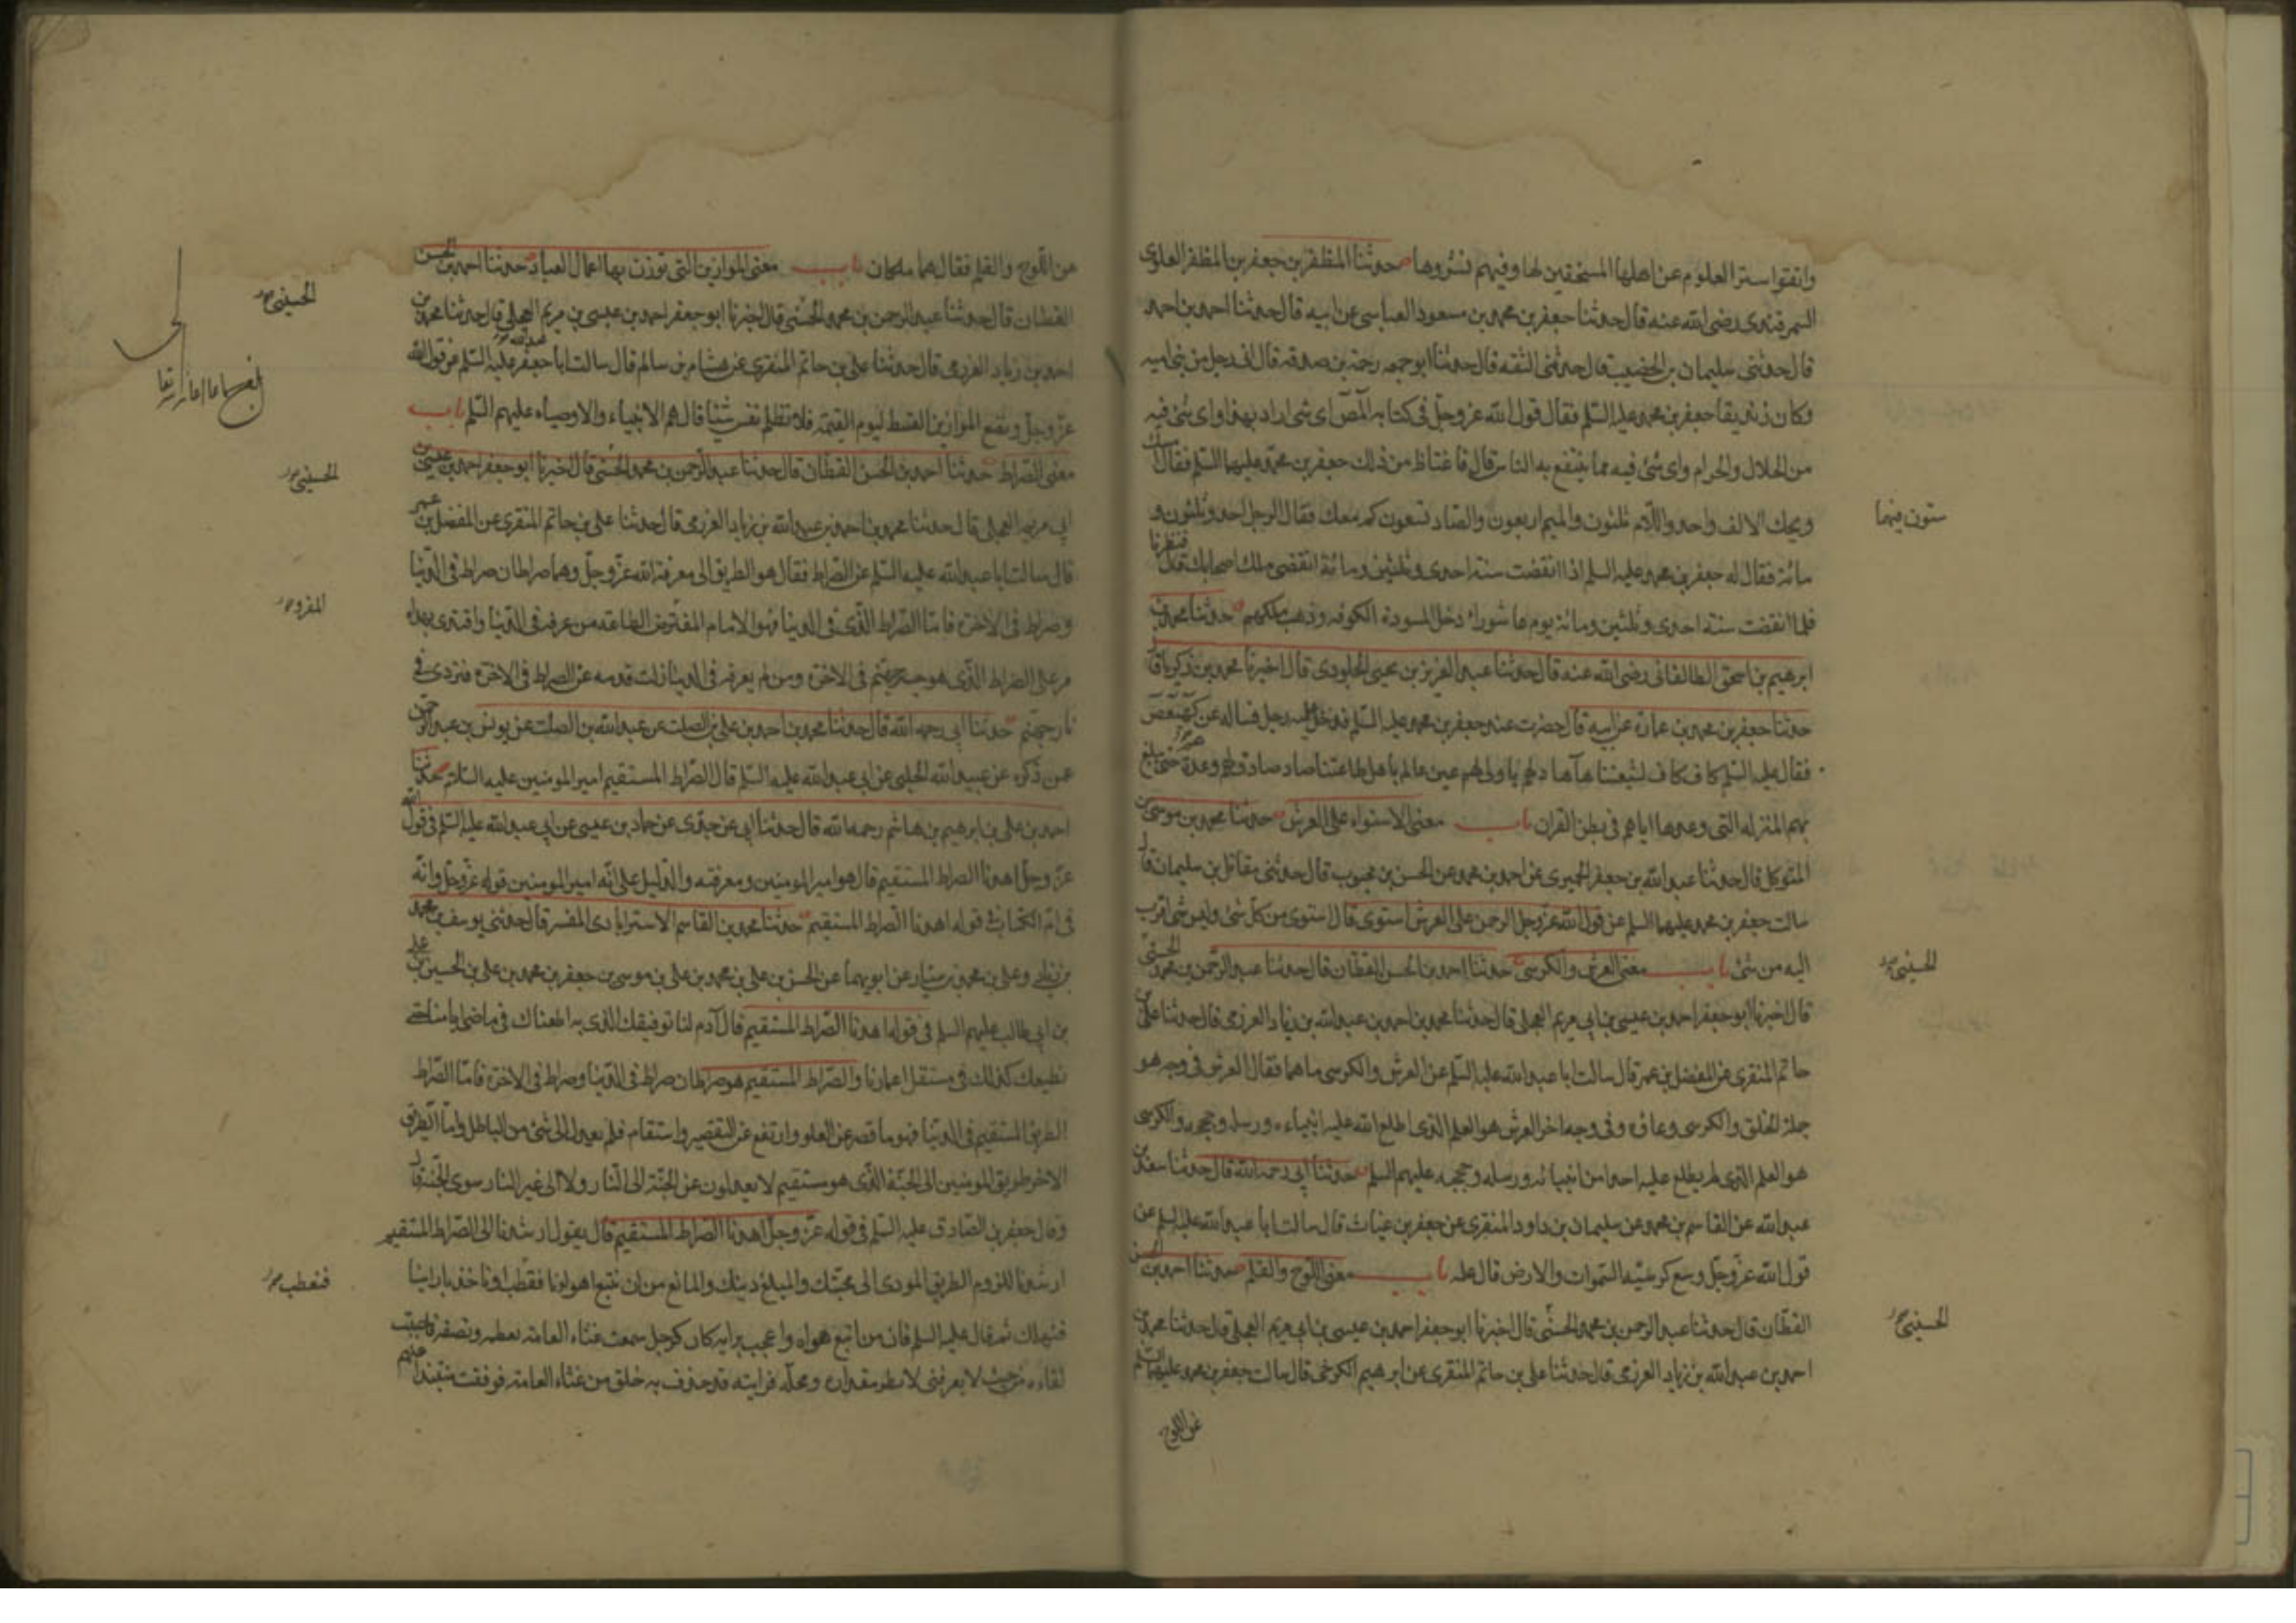 واتقوا ستر العلوم عن اهلها المستحقين لها وفيهم نشروها حدثنا المظفر بن جعفر بن المظفر العلوى
السمرقندى رضى الله عنه قال حدثنا جعفر بن محمد بن مسعود العياشى عن ابيه قال حدثنا احمد بن احمد
قال حدثنى سليمان بن الخضيب قال حدثنى الثقه قال حدثنا ابو جمعه رحمة بن صدقه قال اتى رجل من بنى اميه
وكان زنديقا جعفر بن محمد عليه السلم فقال قول الله عز وجل فى كتابه المص اى شى اراد بهذا واى شئ فيه
من الحلال والحرام واى شئ فيه مما ينتفع به الناس قال فاغتاظ من ذلك جعفر بن محمد عليهما السلم فقال امسك
ويحك الالف واحد واللام ثلثون والميم اربعون والصاد تسعون كم معك فقال الرجل احد وثلثون و
ستون فيهما
مائة فقال له جعفر بن محمد عليه السلم اذا انقضت سنة احدى وثلثين ومائة انقضى ملك اصحابك قال فنظرنا
فلما انقضت سنة احدى وثلثين ومائة يوم عاشوراء دخل المسودة الكوفه وذهب ملكهم حدثنا محمد بن
ابرهيم بن اسحق الطالقانى رضى الله عنه قال حدثنا عبد العزيز بن يحيى الجلودى قال اخبرنا محمد بن زكريا قال
حدثنا جعفر بن محمد بن عمارة عن ابيه قال حضرت عند جعفر بن محمد عليه السلم فدخل عليه رجل فساله عن كهيعص
فقال عليه السلم كاف كاف لشيعتنا ها هاد لهم يا ولى لهم عين عالم باهل طاعتنا صاد صادق لهم وعده حتى يبلغ
بهم المنزله التى وعدها اياهم فى بطن القران باب معنى الاستواء على العرش حدثنا محمد بن موسى بن
المتوكل قال حدثنا عبد الله بن جعفر الحميرى عن احمد بن محمد عن الحسن بن محبوب قال حدثنى مقاتل بن سليمان قال
سالت جعفر بن محمد عليهما السلم عن قول الله عز وجل الرحمن على العرش استوى قال استوى من كل شئ وليس شى اقرب
اليه من شئ باب معنى العرش والكرسى حدثنا احمد بن الحسن القطان قال حدثنا عبد الرحمن بن محمد الحسنى
الحسينى
قال اخبرنا ابو جعفر احمد بن عيسى بن ابى مريم العجلى قال حدثنا محمد بن احمد بن عبد الله بن زياد العرزمى قال حدثنا على بن
حاتم المنقرى عن المفضل بن عمر قال سالت ابا عبد الله عليه السلم عن العرش والكرسى ما هما فقال العرش فى وجه هو
جملة الخلق والكرسى وعاؤه وفى وجه اخر العرش هو العلم الذى اطلع الله عليه انبياءه ورسله وحججه والكرسى
هو العلم الذى لم يطلع عليه احدا من انبيائه ورسله وحججه عليهم السلم حدثنا ابى رحمه الله قال حدثنا سعد بن
عبد الله عن القاسم بن محمد عن سليمان بن داود المنقرى عن جعفر بن غياث قال سالت ابا عبد الله عليه السلم عن
قول الله عز وجل وسع كرسيه السموات والارض قال علمه باب معنى اللوح والقلم حدثنا احمد بن الحسن
القطان قال حدثنا عبد الرحمن بن محمد الحسنى قال اخبرنا ابو جعفر احمد بن عيسى بن ابى مريم العجلى قال حدثنا محمد بن
الحسينى
احمد بن عبد الله بن زياد العرزمى قال حدثنا على بن حاتم المنقرى عن ابرهيم الكرخى قال سالت جعفر بن محمد عليهما السلم
عن اللوح
عن اللوح والقلم فقال هما ملكان باب معنى الموازين التى توزن بها اعمال العباد حدثنا احمد بن الحسن
القطان قال حدثنا عبد الرحمن بن محمد الحسنى قال اخبرنا ابو جعفر احمد بن عيسى بن مريم العجلى قال حدثنا محمد بن
الحسينى
احمد بن زياد العرزمى قال حدثنا على بن حاتم المنقرى عن هشام بن سالم قال سالت ابا جعفر عليه السلم عن قول الله
عز وجل ونضع الموازين القسط ليوم القيمة فلا تظلم نفس شيئا قال هم الانبياء والاوصياء عليهم السلم باب
معنى الصراط حدثنا احمد بن الحسن القطان قال حدثنا عبد الرحمن بن محمد الحسنى قال اخبرنا ابو جعفر احمد بن عيسى بن
الحسينى
ابى مريم العجلى قال حدثنا محمد بن احمد بن عبد الله بن زياد العرزمى قال حدثنا على بن حاتم المنقرى عن المفضل بن عمر
قال سالت ابا عبد الله عليه السلم عن الصراط فقال هو الطريق الى معرفة الله عز وجل وهما صراطان صراط فى الدنيا
وصراط فى الاخرة فاما الصراط الذى فى الدنيا فهو الامام المفترض الطاعة من عرفه فى الدنيا واقتدى بهداه
المفروض
مر على الصراط الذى هو جسر جهنم فى الاخرة ومن لم يعرفه فى الدنيا زلت قدمه عن الصراط فى الاخرة فتردى فى
نار جهنم حدثنا ابى رحمه الله قال حدثنا محمد بن احمد بن على بن الصلت عن عبد الله بن الصلت عن يونس بن عبد الرحمن
عمن ذكره عن عبيد الله الحلبى عن ابى عبد الله عليه السلم قال الصراط المستقيم امير المومنين عليه السلم حدثنا
احمد بن على بن ابرهيم بن هاشم رحمه الله قال حدثنا ابى عن جدى عن حماد بن عيسى عن ابى عبد الله عليه السلم فى قول الله
عز وجل اهدنا الصراط المستقيم قال هو امير المومنين ومعرفته والدليل على انه امير المومنين قوله عز وجل وانه
فى ام الكتاب فى قوله اهدنا الصراط المستقيم حدثنا محمد بن القاسم الاسترابادى المفسر قال حدثنى يوسف بن محمد
بن زياد وعلى بن محمد بن سيار عن ابويهما عن الحسن بن على بن محمد بن على بن موسى بن جعفر بن محمد بن على بن الحسين بن على
بن ابى طالب عليهم السلم فى قوله اهدنا الصراط المستقيم قال ادم لنا توفيقك الذى به اطعناك فى ماضى ايامنا حتى
نطيعك كذلك فى مستقبل اعمارنا والصراط المستقيم هو صراطان صراط فى الدنيا وصراط فى الاخرة فاما الصراط
الطريق المستقيم فى الدنيا فهو ما قصر عن الغلو وارتفع عن التقصير واستقام فلم يعدل الى شئ من الباطل واما الطريق
الاخر طريق المومنين الى الجنة الذى هو مستقيم لا يعدلون عن الجنة الى النار ولا الى غير النار سوى الجنة قال
وقال جعفر بن الصادق عليه السلم فى قوله عز وجل اهدنا الصراط المستقيم قال يقول ارشدنا الى الصراط المستقيم
ارشدنا للزوم الطريق المودى الى محبتك والمبلغ دينك والمانع من ان نتبع اهواءنا فنعطب او ناخذ بارائنا
فنعطب
فنهلك ثم قال عليه السلم فان من اتبع هواه واعجب برايه كان كرجل سمعت غثاء العامة تعظمه وتصفه فاحببت
لقاءه من حيث لا يعرفنى لانظر مقداره ومحله فرايته قد حذف به خلق من غثاء العامة فوقفت منتبذا عنهم